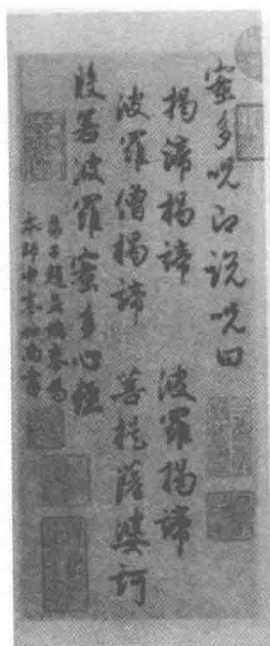 蜜多咒即说咒曰
揭谛揭谛 波罗揭谛
波罗僧揭谛 菩提萨婆诃
般若波罗蜜多心经
弟子赵孟頫奉为
本师中峯和尚书